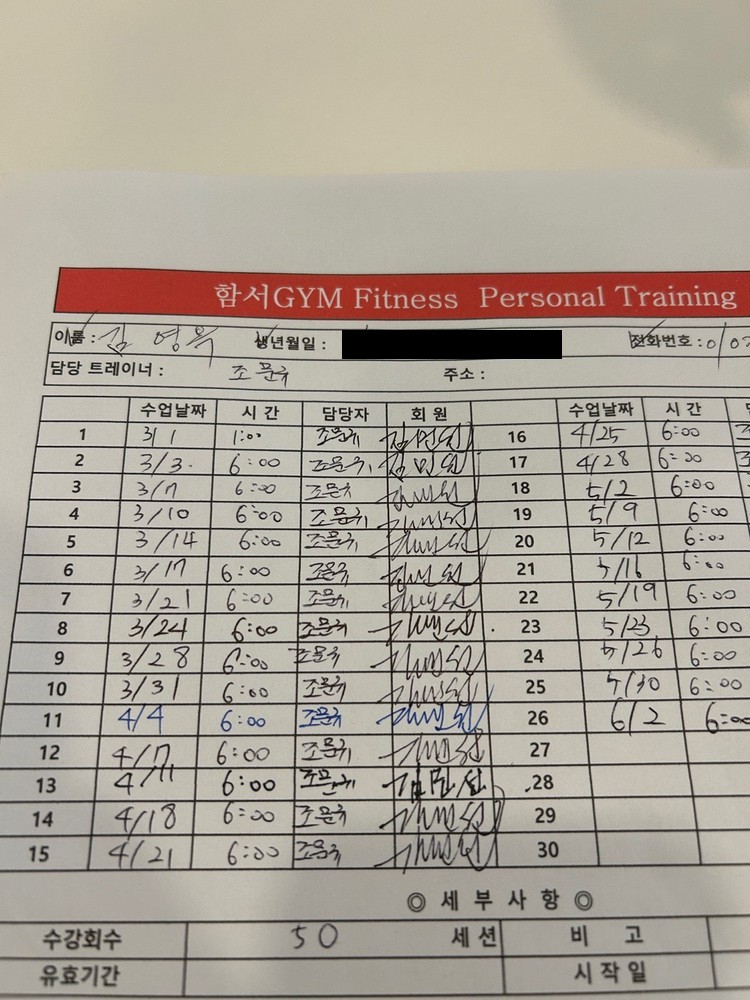 함서GYM Fitness Personal Training
이름 : 김 영옥 생년월일 : 전화번호 : 010
담당 트레이너 : 조문규 주소 :
수업날짜 시 간 담당자 회 원 수업날짜 시 간
1 3/1 1:00 조문규 16 4/25 6:00
2 3/3. 6:00 조문규 17 4/28 6:00
3 3/7 6:00 조문규 18 5/2 6:00
4 3/10 6:00 조문규 19 5/9 6:00
5 3/14 6:00 조문규 20 5/12 6:00
6 3/17 6:00 조문규 21 5/16 6:00
7 3/21 6:00 조문규 22 5/19 6:00
8 3/24 6:00 조문규 23 5/23 6:00
9 3/28 6:00 조문규 24 5/26 6:00
10 3/31 6:00 조문규 25 5/30 6:00
11 4/4 6:00 조문규 26 6/2 6:00
12 4/7 6:00 조문규 27
13 4/11 6:00 조문규 28
14 4/18 6:00 조문규 29
15 4/21 6:00 조문규 30
◎ 세 부 사 항 ◎
수강회수 50 세 션 비 고
유효기간 시 작 일